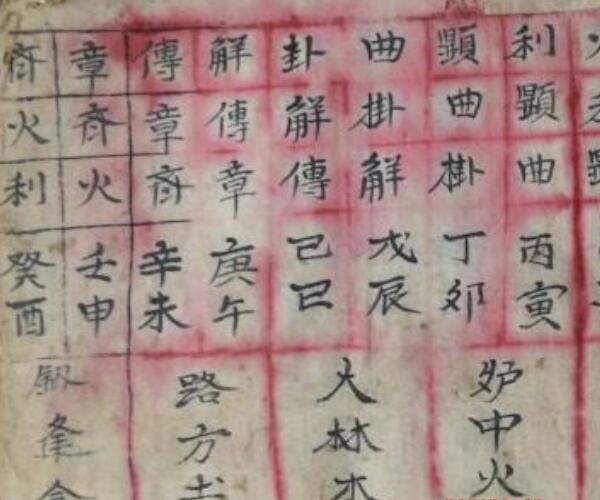 利顕曲丙寅
顕曲掛丁卯
曲掛解戊辰
卦解傳己巳
解傳章庚午
傳章斉辛未
章斉火壬申
斉火利癸酉
炉中火
大林木
路方土
釼逢金